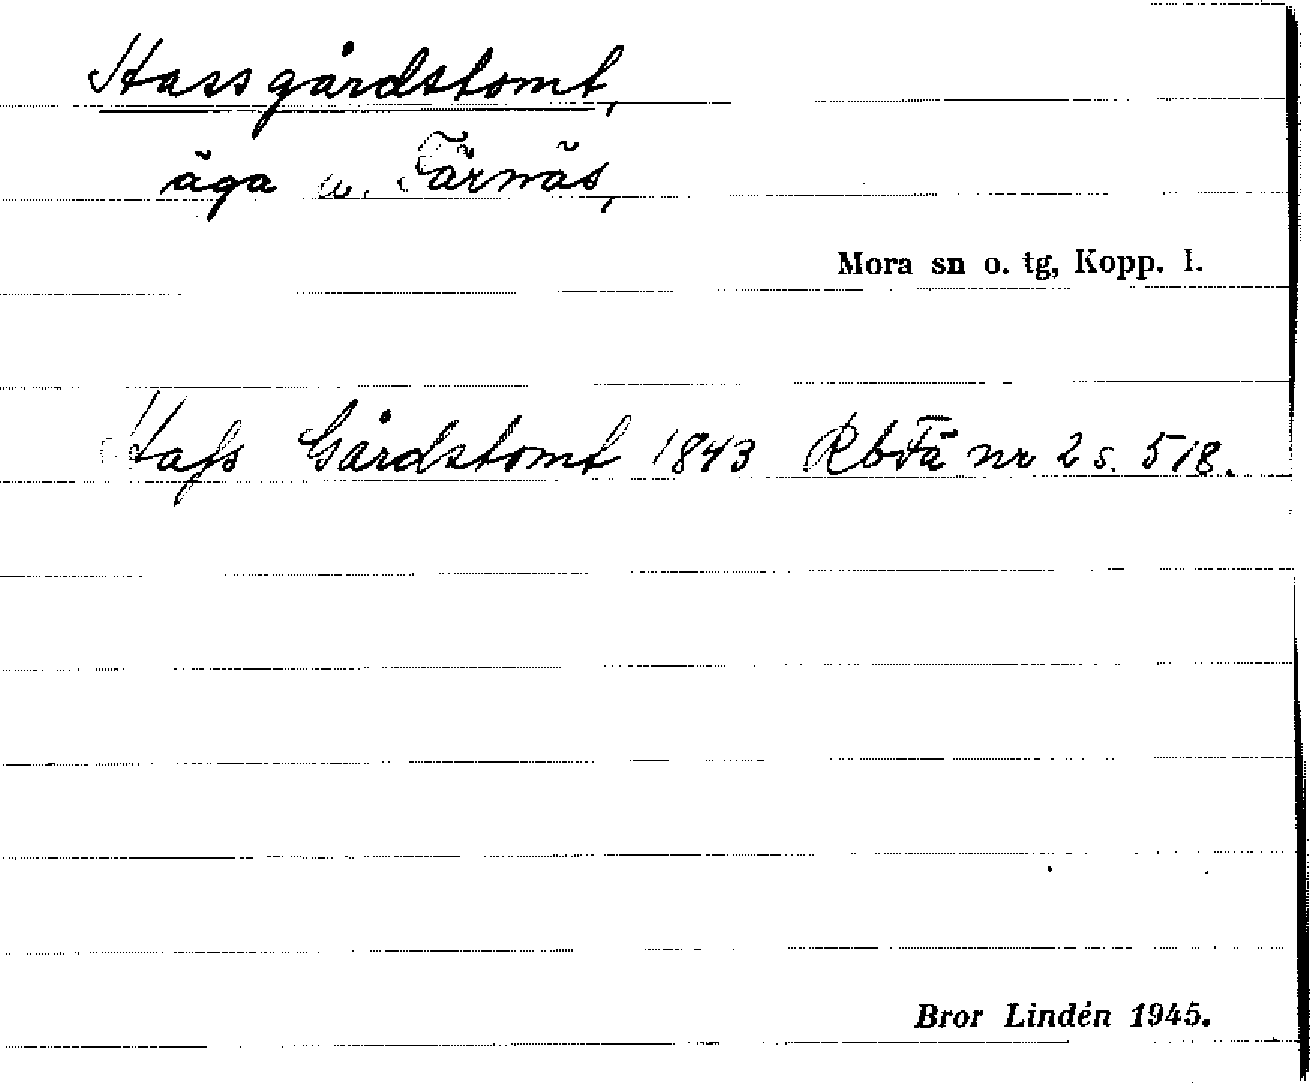 Hassgårdstomt,
äga u. Färnäs,
Mora sn o. tg, Kopp. l.
Hafs Gårdstomt 1843 RbFä nr 2 s. 518.
Bror Lindén 1945.